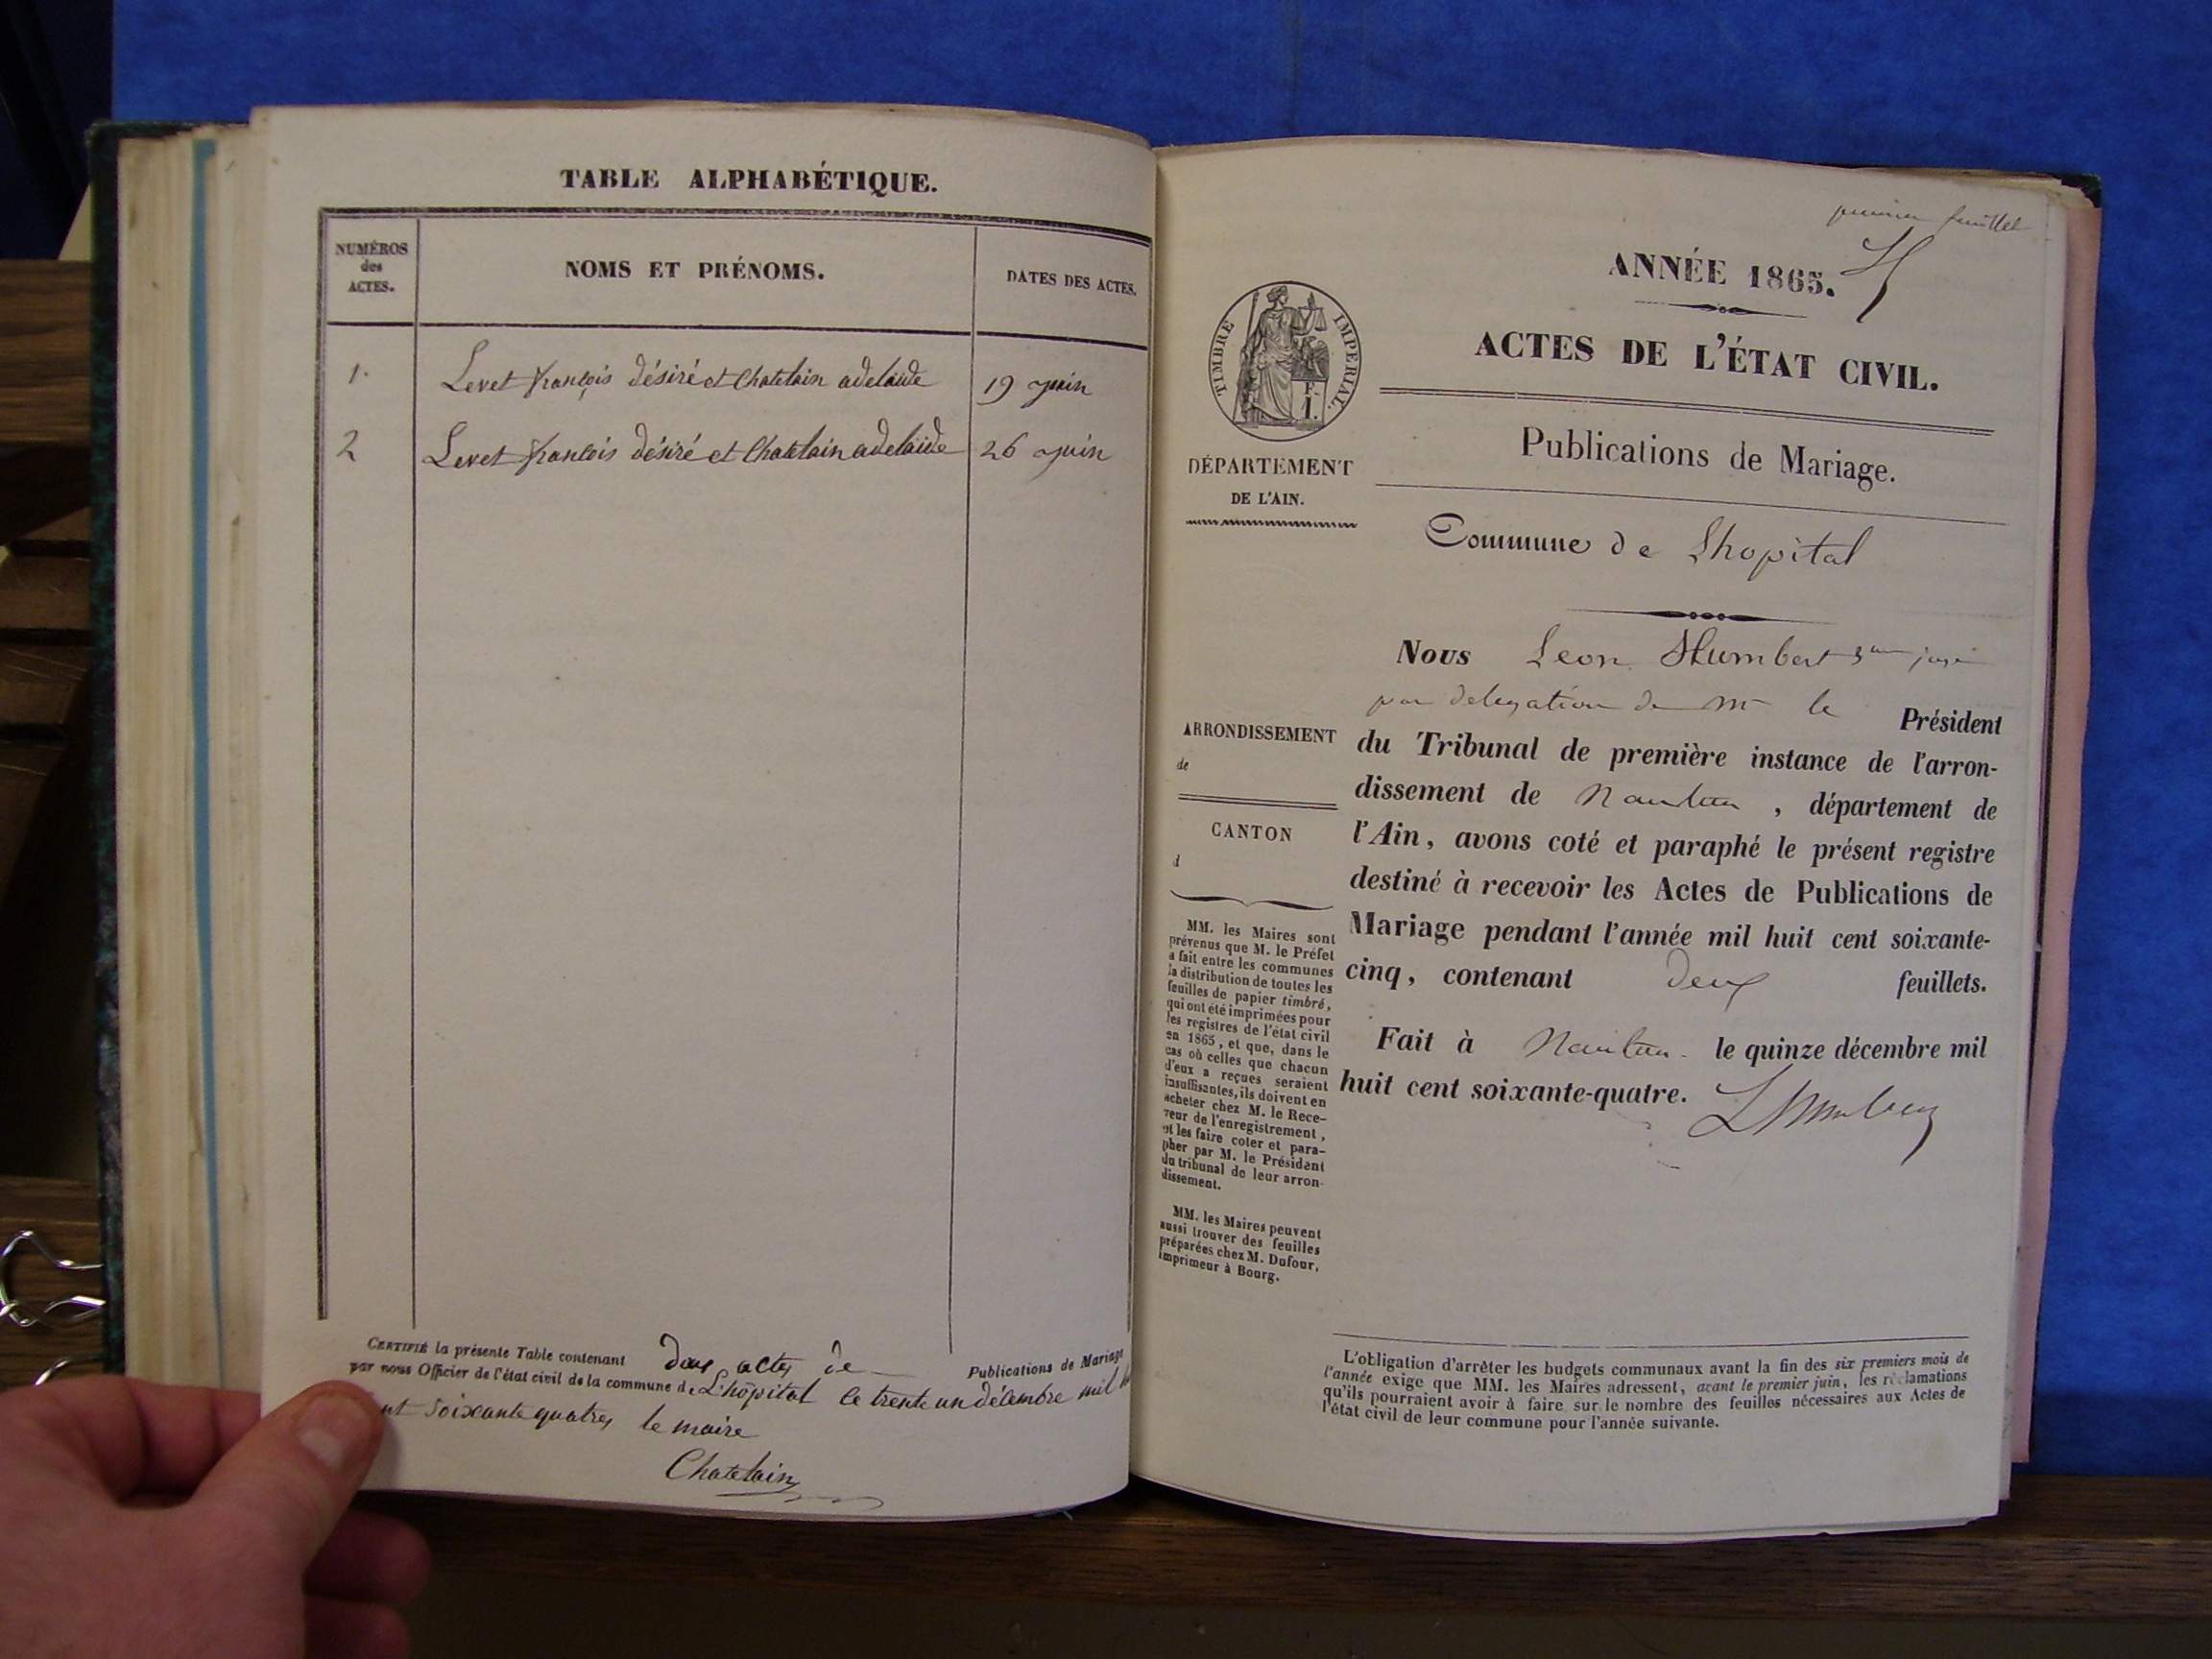 TABLE ALPHABÉTIQUE.
NUMÉROS
des
ACTES.
NOMS ET PRÉNOMS.
DATES DES ACTES.
1. Levet françois désiré et Chatelain adelaïde 19 juin
2 Levet françois désiré et Chatelain adelaïde 26 juin
CERTIFIÉ la présente Table contenant deux actes de Publications de Mariage
par nous Officier de l'état civil de la commune de L'hôpital le trente un décembre mil
soixante quatre, le maire
Chatelain
premier feuillet
ANNÉE 1865.
ACTES DE L'ÉTAT CIVIL.
TIMBRE IMPERIAL.
F.
1.
Publications de Mariage.
DÉPARTEMENT
DE L'AIN.
Commune de Lhopital
Nous Leon Humbert juge
par delegation de Mr le Président
ARRONDISSEMENT
de
du Tribunal de première instance de l'arron-
dissement de Nantua, département de
CANTON
d
l'Ain, avons coté et paraphé le présent registre
destiné à recevoir les Actes de Publications de
Mariage pendant l'année mil huit cent soixante-
cinq, contenant deux feuillets.
Fait à Nantua le quinze décembre mil
huit cent soixante-quatre.
LHumbert
MM. les Maires sont
prévenus que M. le Préfet
a fait entre les communes
la distribution de toutes les
feuilles de papier timbré,
qui ont été imprimées pour
les registres de l'état civil
en 1865, et que, dans le
cas où celles que chacun
d'eux a reçues seraient
insuffisantes, ils doivent en
acheter chez M. le Rece-
veur de l'enregistrement,
et les faire coter et para-
pher par M. le Président
du tribunal de leur arron-
dissement.
MM. les Maires peuvent
aussi trouver des feuilles
préparées chez M. Dufour,
imprimeur à Bourg.
L'obligation d'arrêter les budgets communaux avant la fin des six premiers mois de
l'année exige que MM. les Maires adressent, avant le premier juin, les réclamations
qu'ils pourraient avoir à faire sur le nombre des feuilles nécessaires aux Actes de
l'état civil de leur commune pour l'année suivante.